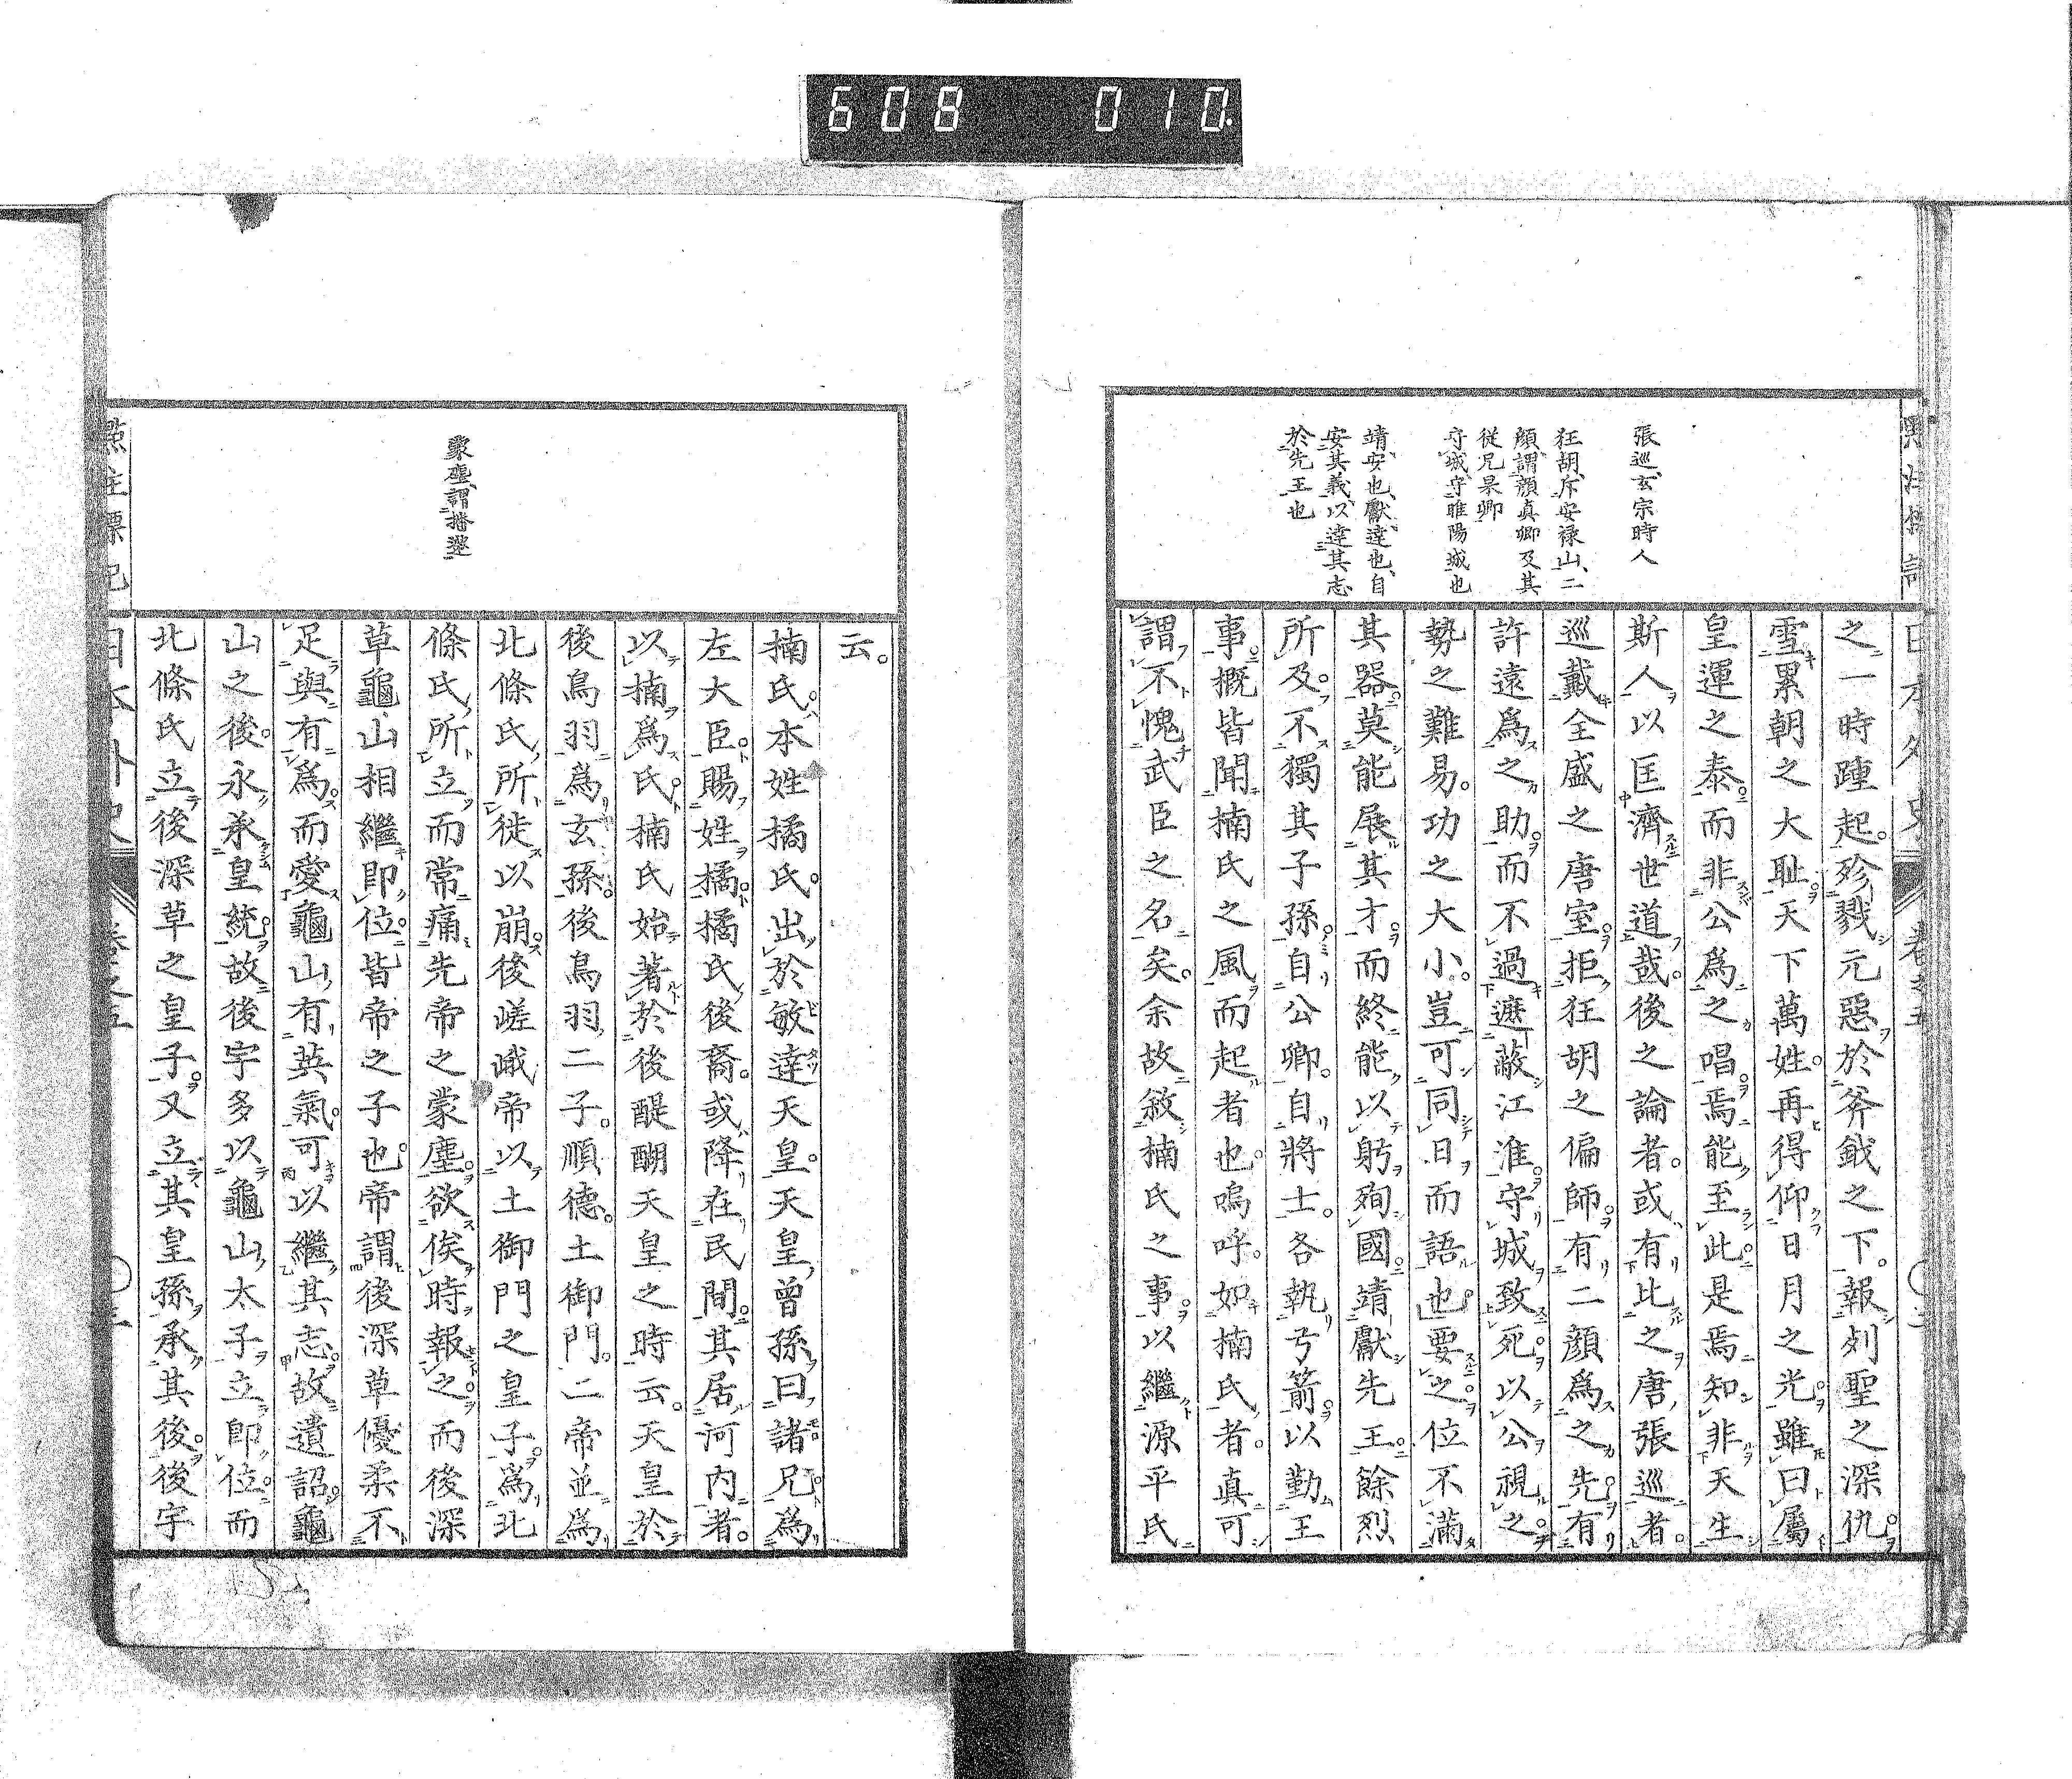 608 010.
張巡、玄宗時人
狂胡、斥安禄山、二
顏、謂顏真卿及其
従兄杲卿
守城、守睢陽城也
靖、安也、獻、達也、自
安其義、以達其志
於先王也
之一時踵起。殄戮元惡於斧鉞之下。報列聖之深仇。
雪累朝之大耻。天下萬姓。再得仰日月之光。雖曰屬
皇運之泰。而非公爲之唱。焉能至此。是焉知非天生
斯人以匡濟世道哉。後之論者。或有比之唐張巡者。
巡戴全盛之唐室。拒狂胡之偏師。有二顏爲之先。有
許遠爲之助。而不過遮蔽江淮。守城致死。以公視之。
勢之難易。功之大小。豈可同日而語也。要之位不滿
其器。莫能展其才。而終能以躬殉國。靖獻先王。餘烈
所及。不獨其子孫。自公卿。自將士。各執弓箭。以勤王
事。概皆聞楠氏之風而起者也。嗚呼。如楠氏者。真可
謂不愧武臣之名矣。余故敘楠氏之事。以繼源平氏
云。
蒙塵、謂播遷
楠氏。本姓橘氏。出於敏達天皇。天皇曾孫曰諸兄。爲
左大臣。賜姓橘。橘氏後裔。或降在民間。其居河内者。
以楠爲氏。楠氏始著於後醍醐天皇之時云。天皇於
後鳥羽爲玄孫。後鳥羽二子。順德。土御門。二帝並爲
北條氏所徙以崩。後嵯峨帝以土御門之皇子。爲北
條氏所立。而常痛先帝之蒙塵。欲俟時報之。而後深
草龜山相繼卽位。皆帝之子也。帝謂後深草優柔不
足與有爲。而愛龜山有英氣。可以繼其志。故遺詔龜
山之後。永承皇統。故後宇多以龜山太子立卽位。而
北條氏立後深草之皇子。又立其皇孫。承其後。後宇
日本外史
卷之五